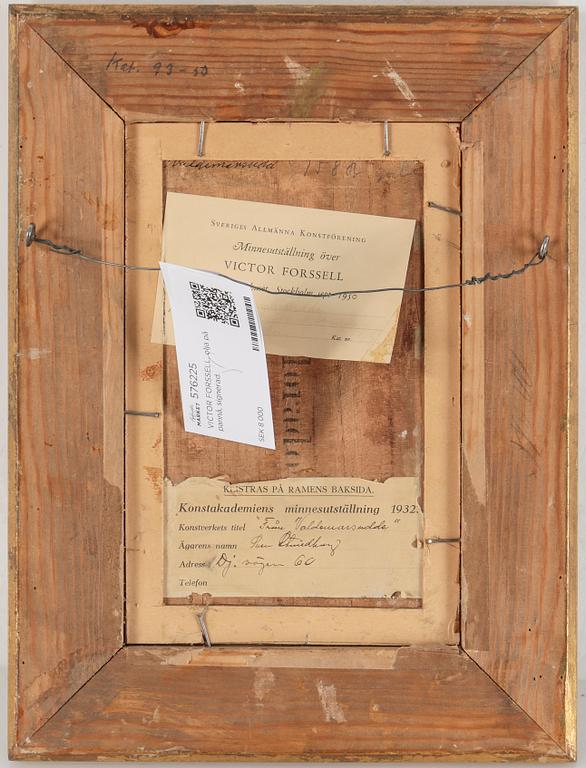 Kat. 93-50
Valdemarsudde
SVERIGES ALLMÄNNA KONSTFÖRENING
Minnesutställning över
VICTOR FORSSELL
Stockholm sept 1950
Kat. nr.
MARKET 576225
VICTOR FORSSELL, olja på
pannå, signerad.
SEK 8 000
KLISTRAS PÅ RAMENS BAKSIDA.
Konstakademiens minnesutställning 1932.
Konstverkets titel "Från Valdemarsudde"
Ägarens namn
Adress Dj. vägen 60
Telefon